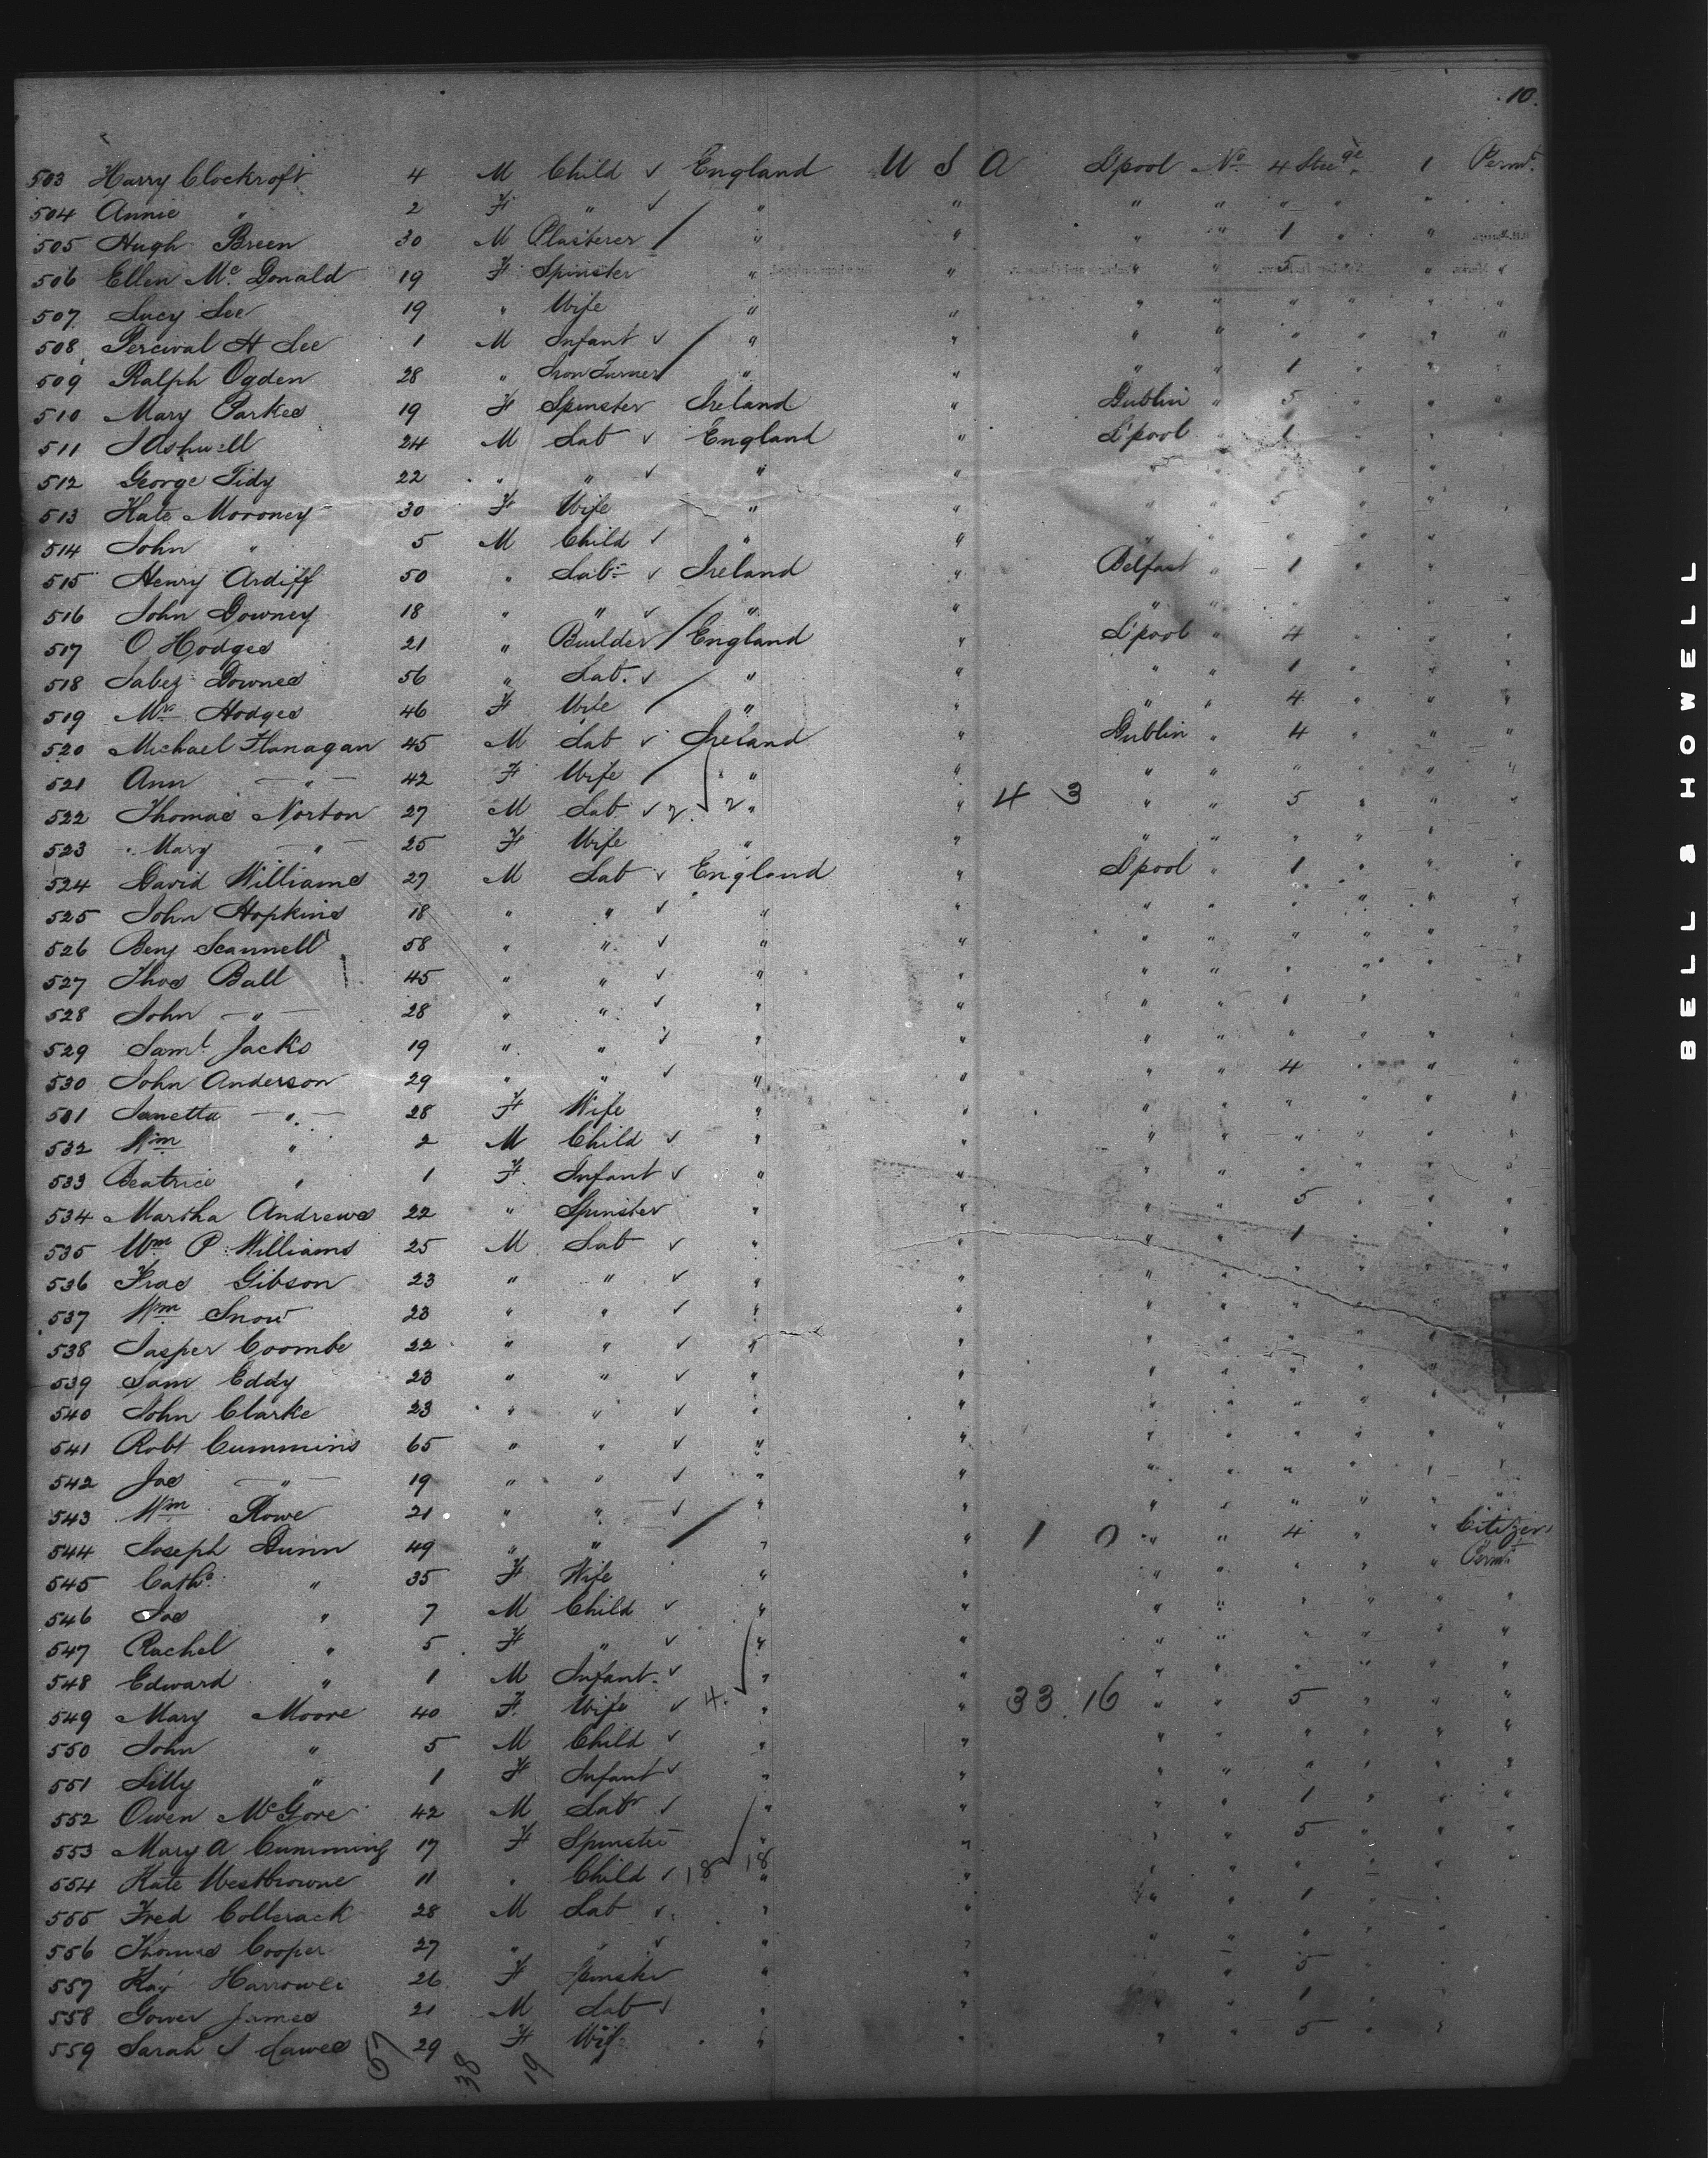 10.
503 Harry Clockroft 4 M Child ✓ England U S A L'pool No 4 Stee ge 1 Permt.
504 Annie " 2 F " ✓ " " " " " " " "
505 Hugh Breen 30 M Plasterer / " " " " 1 " "
506 Ellen Mc Donald 19 F Spinster " " " " 5 " " "
507 Lucy Lee 19 " Wife " " " " " " " "
508 Percival H Lee 1 M Infant ✓ " " " " " " " "
509 Ralph Ogden 28 " Iron Turner / " " " " 1 " "
510 Mary Parkes 19 F Spinster Ireland " Dublin " 5 " " "
511 J Ashwell 24 M Lab ✓ England " L'pool " 1 " "
512 George Tidy 22 " " ✓ " " " " " " "
513 Kate Moroney 30 F Wife " " " " 5 " "
514 John " 5 M Child ✓ " " " " " " "
515 Henry Ardiff 50 " Labr ✓ Ireland " Belfast " 1 " "
516 John Downey 18 " " ✓ " " " " " " "
517 O Hodges 21 " Builder / England " L'pool " 4 " "
518 Jabez Downes 56 " Lab. ✓ " " " " 1 " "
519 Mrs Hodges 46 F Wife / " " " " 4 " "
520 Michael Flanagan 45 M Lab ✓ Ireland " Dublin " 4 " " "
521 Ann " 42 F Wife / " " " " " " " "
522 Thomas Norton 27 M Lab ✓ 2 2 " " 4 3 " " 5 " " "
523 Mary " 25 F Wife " " " " " " "
524 David Williams 27 M Lab ✓ England " L'pool " 1 " " "
525 John Hopkins 18 " " ✓ " " " " " " " "
526 Benj Scannell 58 " " ✓ " " " " " " " "
527 Thos Ball 45 " " ✓ " " " " " " " "
528 John " 28 " " ✓ " " " " " " " "
529 Saml Jacks 19 " " ✓ " " " " " " " "
530 John Anderson 29 " " ✓ " " " " 4 " " "
531 Janetta " 28 F Wife " " " " " " " "
532 Wm " 2 M Child ✓ " " " " " " " "
533 Beatrice " 1 F Infant ✓ " " " " " " " "
534 Martha Andrews 22 " Spinster " " " " 5 " " "
535 Wm P Williams 25 M Lab ✓ " " " " 1 " " "
536 Fras Gibson 23 " " ✓ " " " " " " " "
537 Wm Snow 23 " " ✓ " " " " " " " "
538 Jasper Coombe 22 " " ✓ " " " " " " " "
539 Sam Eddy 23 " " ✓ " " " " " " " "
540 John Clarke 23 " " ✓ " " " " " " " "
541 Robt Cummins 65 " " ✓ " " " " " " " "
542 Jas " 19 " " ✓ " " " " " " " "
543 Wm Rowe 21 " " ✓ " " " " " " " "
544 Joseph Dunn 49 " " / " " 1 0 " " 4 " " Citizen
545 Cathe " 35 F Wife " " " " " " " Permt
546 Jos " 7 M Child ✓ " " " " " " " "
547 Rachel " 5 F " ✓ " " " " " " " "
548 Edward " 1 M Infant ✓ " " " " " " " "
549 Mary Moore 40 F Wife ✓ 4 " " 33 16 " " 5 " " "
550 John " 5 M Child ✓ " " " " " " " "
551 Lilly " 1 F Infant ✓ " " " " " " " "
552 Owen McGore 42 M Labr ✓ " " " " 1 " " "
553 Mary A Cumming 17 F Spinster " " " " 5 " " "
554 Kate Westbrowne 11 " Child ✓ 18 18 " " " " " " " "
555 Fred 28 M Lab ✓ " " " " 1 " "
556 Thomas Cooper 27 " " ✓ " " " " " " "
557 26 F Spinster " " " " 5 " "
558 Gower James 21 M Lab ✓ " " " " 1 " "
559 Sarah J Dawes 29 F Wife " " " " 5 " "
57 38 19
BELL & HOWELL